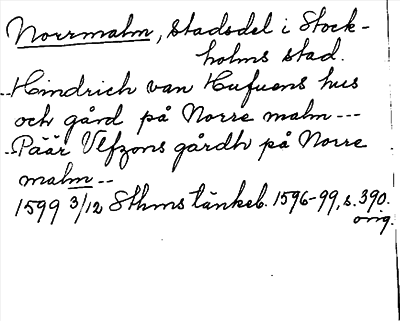 Norrmalm, stadsdel i Stock-
holms stad.
..Hindrich van Hufuens hus
och gård på Norre malm ---
..Päär Ulfzons gårdh på Norre
malm --
1599 3/12 Sthms tänkeb. 1596-99, s. 390.
orig.